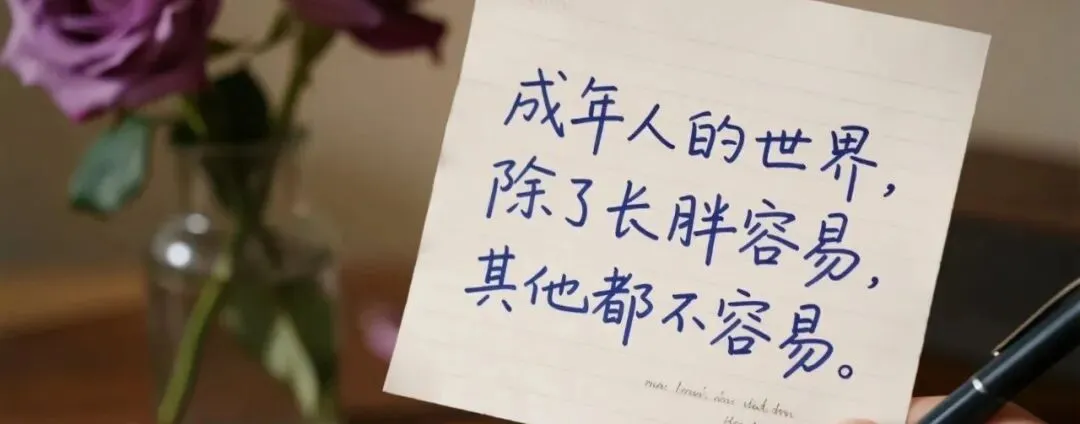 成年人的世界,
除了长胖容易,
其他都不容易。